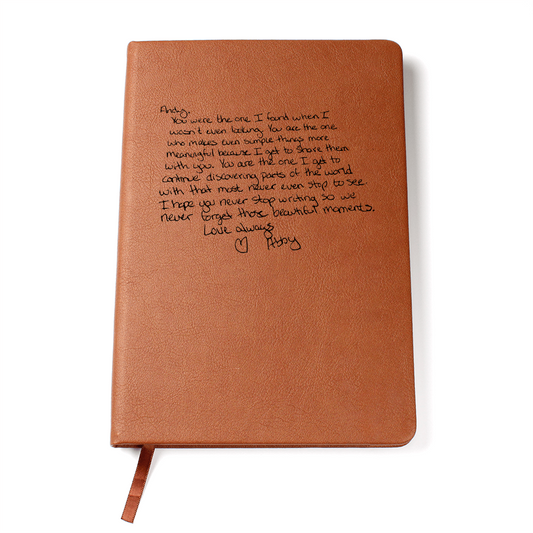 Andy,
You were the one I found when I
wasn't even looking. You are the one
who makes even simple things more
meaningful because I get to share them
with you. You are the one I get to
continue discovering parts of the world
with that most never even stop to see.
I hope you never stop writing so we
never forget those beautiful moments.
Love always
♡ Abby